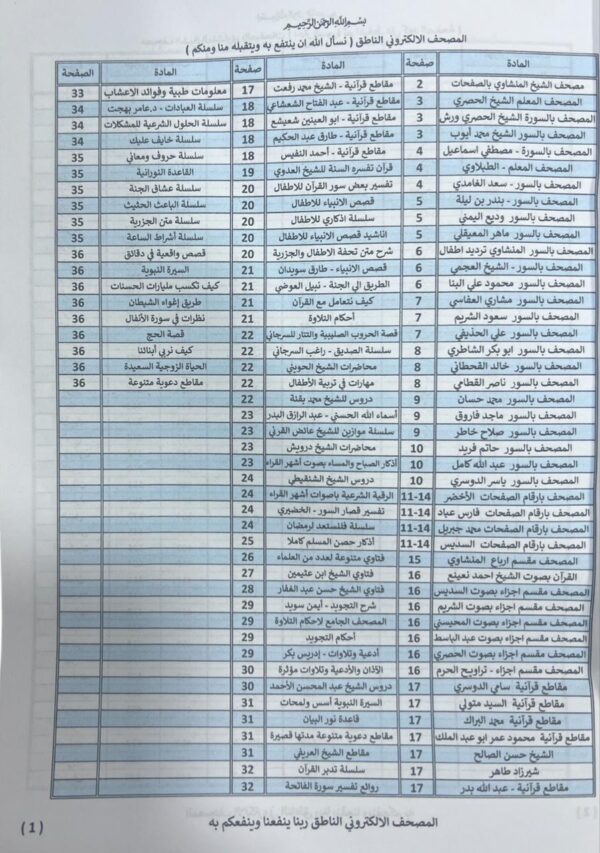 بسم الله الرحمن الرحيم
المصحف الالكتروني الناطق ( نسأل الله ان ينتفع به ويتقبله منا ومنكم )
المادة صفحة المادة صفحة المادة الصفحة
مصحف الشيخ المنشاوي بالصفحات 2 مقاطع قرآنية - الشيخ محمد رفعت 17 معلومات طبية وفوائد الاعشاب 33
المصحف المعلم الشيخ الحصري 3 مقاطع قرآنية - عبد الفتاح الشعشاعي 18 سلسلة العبادات - د.عامر بهجت 34
المصحف بالسورة الشيخ الحصري ورش 3 مقاطع قرآنية - ابو العينين شعيشع 18 سلسلة الحلول الشرعية للمشكلات 34
المصحف بالسور الشيخ محمد أيوب 3 مقاطع قرآنية - طارق عبد الحكيم 18 سلسلة خايف عليك 34
المصحف بالسورة - مصطفي اسماعيل 4 مقاطع قرآنية - أحمد النفيس 18 سلسلة حروف ومعاني 35
المصحف المعلم - الطبلاوي 4 قرآن تفسره السنة للشيخ العدوي 19 القاعدة النورانية 35
المصحف بالسور - سعد الغامدي 4 تفسير بعض سور القرآن للاطفال 20 سلسلة عشاق الجنة 35
المصحف بالسور - بندر بن ليلة 5 قصص الانبياء للاطفال 20 سلسلة الباعث الحثيث 35
المصحف بالسور وديع اليمني 5 سلسلة اذكاري للاطفال 20 سلسلة متن الجزرية 35
المصحف بالسور ماهر المعيقلي 5 اناشيد قصص الانبياء للاطفال 20 سلسلة أشراط الساعة 35
المصحف بالسور المنشاوي ترديد اطفال 6 شرح متن تحفة الاطفال والجزرية 20 قصص واقعية في دقائق 36
المصحف بالسور - الشيخ العجمي 6 قصص الانبياء - طارق سويدان 21 السيرة النبوية 36
المصحف بالسور محمود علي البنا 6 الطريق الي الجنة - نبيل العوضي 21 كيف تكسب مليارات الحسنات 36
المصحف بالسور مشاري العفاسي 7 كيف نتعامل مع القرآن 21 طريق إغواء الشيطان 36
المصحف بالسور سعود الشريم 7 أحكام التلاوة 21 نظرات في سورة الأنفال 36
المصحف بالسور علي الحذيفي 7 قصة الحروب الصليبية والتتار للسرجاني 22 قصة الحج 36
المصحف بالسور ابو بكر الشاطري 8 سلسلة الصديق - راغب السرجاني 22 كيف نربي أبنائنا 36
المصحف بالسور خالد القحطاني 8 محاضرات الشيخ الحويني 22 الحياة الزوجية السعيدة 36
المصحف بالسور ناصر القطامي 8 مهارات في تربية الأطفال 22 مقاطع دعوية متنوعة 36
المصحف بالسور محمد حسان 9 دروس للشيخ محمد بقنة 22
المصحف بالسور ماجد فاروق 9 أسماء الله الحسني - عبد الرازق البدر 23
المصحف بالسور صلاح خاطر 9 سلسلة موازين للشيخ عائض القرني 23
المصحف بالسور حاتم فريد 10 محاضرات الشيخ درويش 23
المصحف بالسور عبد الله كامل 10 أذكار الصباح والمساء بصوت أشهر القراء 23
المصحف بالسور ياسر الدوسري 10 دروس الشيخ الشنقيطي 24
المصحف بارقام الصفحات الأخضر 11-14 الرقية الشرعية باصوات أشهر القراء 24
المصحف بارقام الصفحات فارس عباد 11-14 تفسير قصار السور - الخضيري 24
المصحف بارقام الصفحات محمد جبريل 11-14 سلسلة فلنستعد لرمضان 24
المصحف بارقام الصفحات السديس 11-14 أذكار حصن المسلم كاملا 25
المصحف مقسم ارباع المنشاوي 15 فتاوي متنوعة لعدد من العلماء 26
القرآن بصوت الشيخ احمد نعينع 16 فتاوي الشيخ ابن عثيمين 27
المصحف مقسم اجزاء بصوت السديس 16 فتاوي الشيخ حسن عبد الغفار 28
المصحف مقسم اجزاء بصوت الشريم 16 شرح التجويد - أيمن سويد 29
المصحف مقسم اجزاء بصوت المحيسني 16 المصحف الجامع لاحكام التلاوة 29
المصحف مقسم اجزاء بصوت عبد الباسط 16 أحكام التجويد 29
المصحف مقسم اجزاء بصوت الحصري 16 أدعية وتلاوات - إدريس بكر 29
المصحف مقسم اجزاء - تراويح الحرم 16 الآذان والأدعية وتلاوات مؤثرة 30
مقاطع قرآنية سامي الدوسري 17 دروس الشيخ عبد المحسن الأحمد 30
مقاطع قرآنية السيد متولي 17 السيرة النبوية أسس ولمحات 31
مقاطع قرآنية محمد البراك 17 قاعدة نور البيان 31
مقاطع قرآنية محمود عمر ابو عبد الملك 17 مقاطع دعوية متنوعة مدتها قصيرة 31
الشيخ حسن الصالح 17 مقاطع الشيخ العريفي 31
شيرزاد طاهر 17 سلسلة تدبر القرآن 32
مقاطع قرآنية - عبد الله بدر 17 روائع تفسير سورة الفاتحة 32
المصحف الالكتروني الناطق ربنا ينفعنا وينفعكم به
(1)